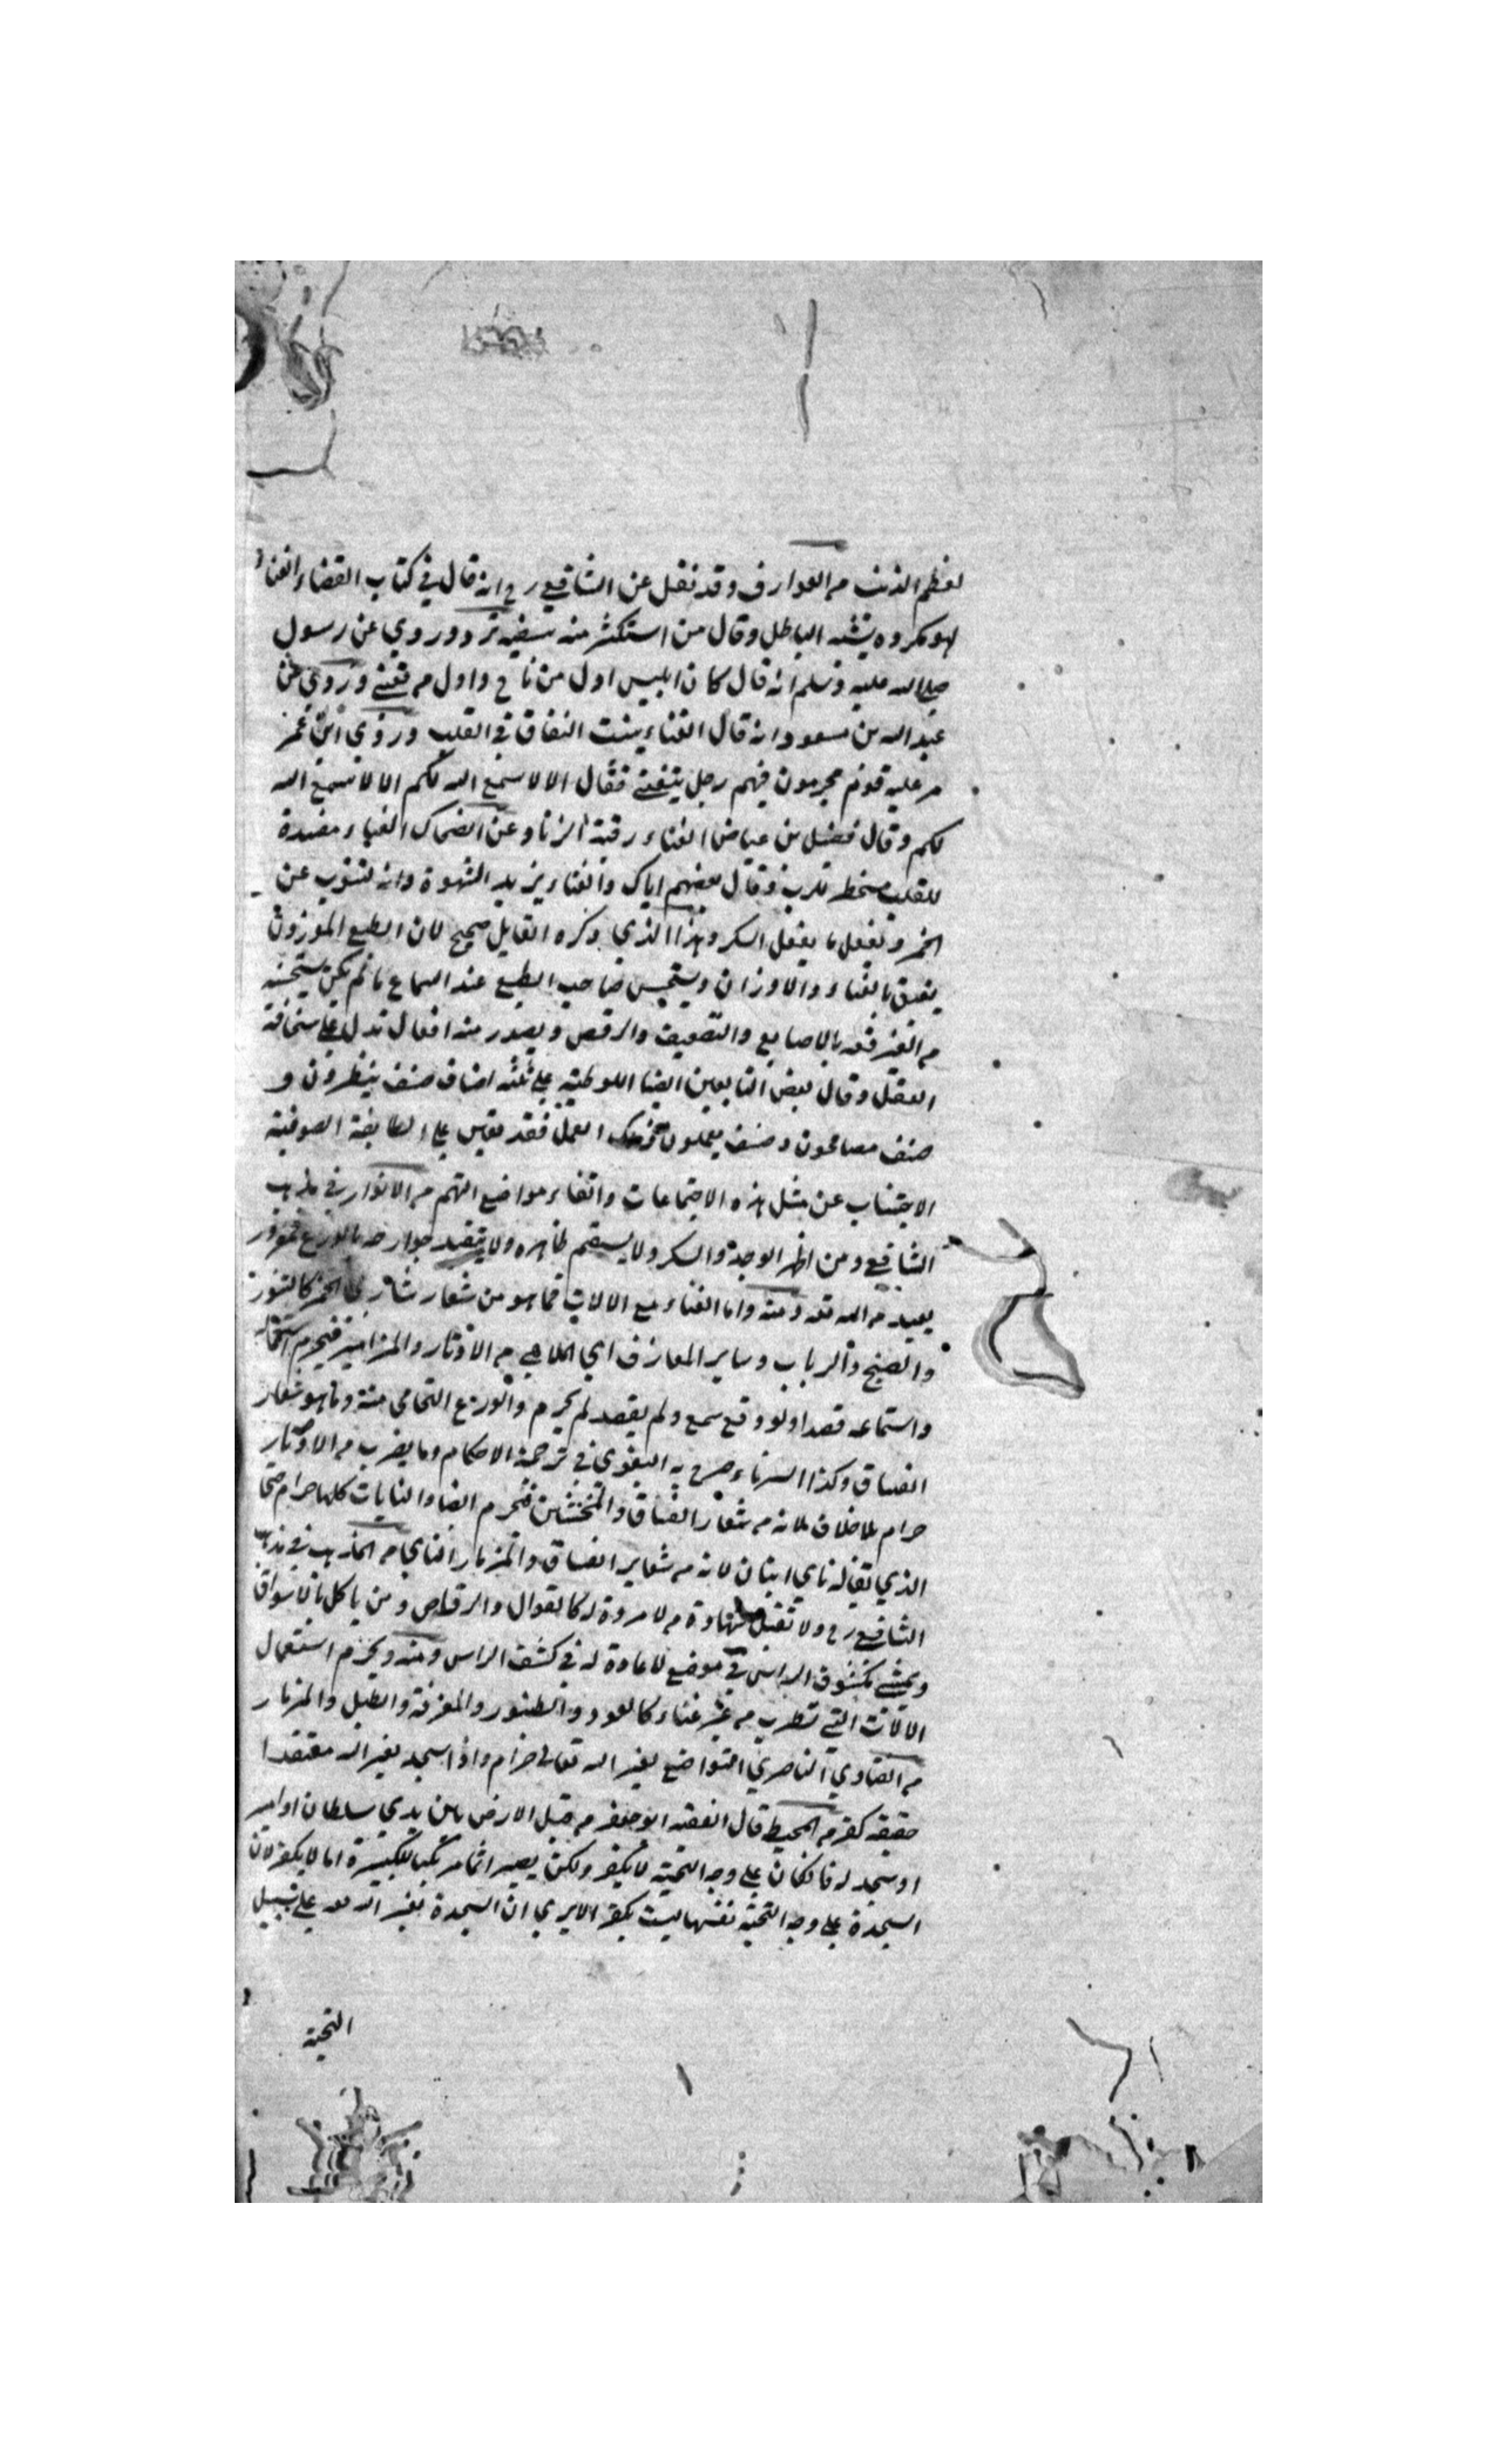 لعظم الذنب من العوارف وقد نقل عن الشافعي رح انه قال في كتاب القضاء الغناء
لهو مكروه يشبه الباطل وقال من استكثر منه سفيه ترد وروي عن رسول
صلى الله عليه وسلم انه قال كان ابليس اول من ناح واول من تغنى وروي عن
عبد الله بن مسعود انه قال الغناء ينبت النفاق في القلب وروي ابن عمر
مر عليه قوم محرمون فيهم رجل يتغنى فقال الا لا سمع الله لكم الا لا سمع الله
لكم وقال فضيل بن عياض الغناء رقية الزنا وعن الضحاك الغناء مفسدة
للقلب مسخط للرب وقال بعضهم اياك والغناء يزيد الشهوة وانه لينوب عن
الخمر وتفعل ما يفعل السكر وهذا الذي ذكره القايل صحيح لان الطبع الموزون
يفيق بالغناء والاوزان ويستحسن صاحب الطبع عند السماع ما لم يكن يستحسنه
من الفرقعه بالاصابع والتصفيق والرقص ويصدر منه افعال تدل على سخافة
العقل وقال بعض التابعين ايضا اللوطية على ثلثه اصناف صنف ينظرون و
صنف يصافحون وصنف يعملون ذلك العمل فقد تعين على الطايفة الصوفية
الاجتناب عن مثل هذه الاجتماعات واتقاء مواضع التهم من الانوار في مذهب
الشافعي ومن اظهر الوجد والسكر ولا يستقم ظاهره ولا يتقيد جوارحه بالورع مغرور
بعيد من الله تعه ومنه واما الغناء مع الالات مما هو من شعار شاربي الخمر كالطنبور
والصنج والرباب وساير المعازف اي الملاهي من الاوتار والمزامير فيحرم استعماله
واستماعه قصدا ولو وقع سمع ولم يقصد لم يحرم والورع التحامي منه وما هو شعار
الفساق وكذا السرناء صرح به البغوي في ترجمة الاحكام وما يضرب من الاوتار
حرام بلا خلاف لانه من شعار الفساق والمخنثين فتحرم ايضا والنايات كلها حرام حتى
الذي يقال له ناي انبان لانه من شعاير الفساق والمزمار الناي من المذهب في مذهب
الشافعي رح ولا تقبل شهادة من لا مروة له كالقوال والرقاص ومن ياكل بالاسواق
ويمشي مكشوف الراس في موضع لا عادة له في كشف الراس ومنه ويحرم استعمال
الالات التي تطرب من غير غناء كالعود والطنبور والمعزفة والطبل والمزمار
من الفتاوي الناصري التواضع لغير الله تعالى حرام واذا سجد لغير الله معتقدا
حقيقه كفر من المحيط قال الفقيه ابو جعفر من قبل الارض بين يدي سلطان او امير
او سجد له فان كان على وجه التحية لا يكفر ولكن يصير اثما مرتكبا للكبيرة اما لا يكفر لان
السجدة على وجه التحية نفسها ليست بكفر الا يري ان السجدة لغير الله تعه على سبيل
التحية